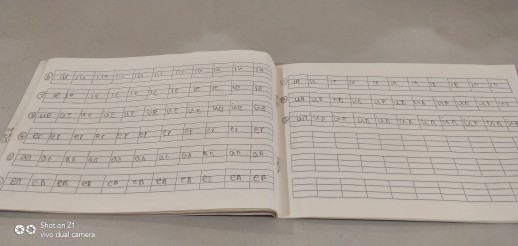 iu iu iu iu iu iu iu iu iu iu iu
ie ie ie ie ie ie ie ie ie ie ie
üe üe üe üe üe üe üe üe üe üe üe
er er er er er er er er er er er
an an an an an an an an an an an
en en en en en en en en en en en
in in in in in in in in in in in
un un un un un un un un un un un
ün ün ün ün ün ün ün ün ün ün ün
Shot on Z1
vivo dual camera